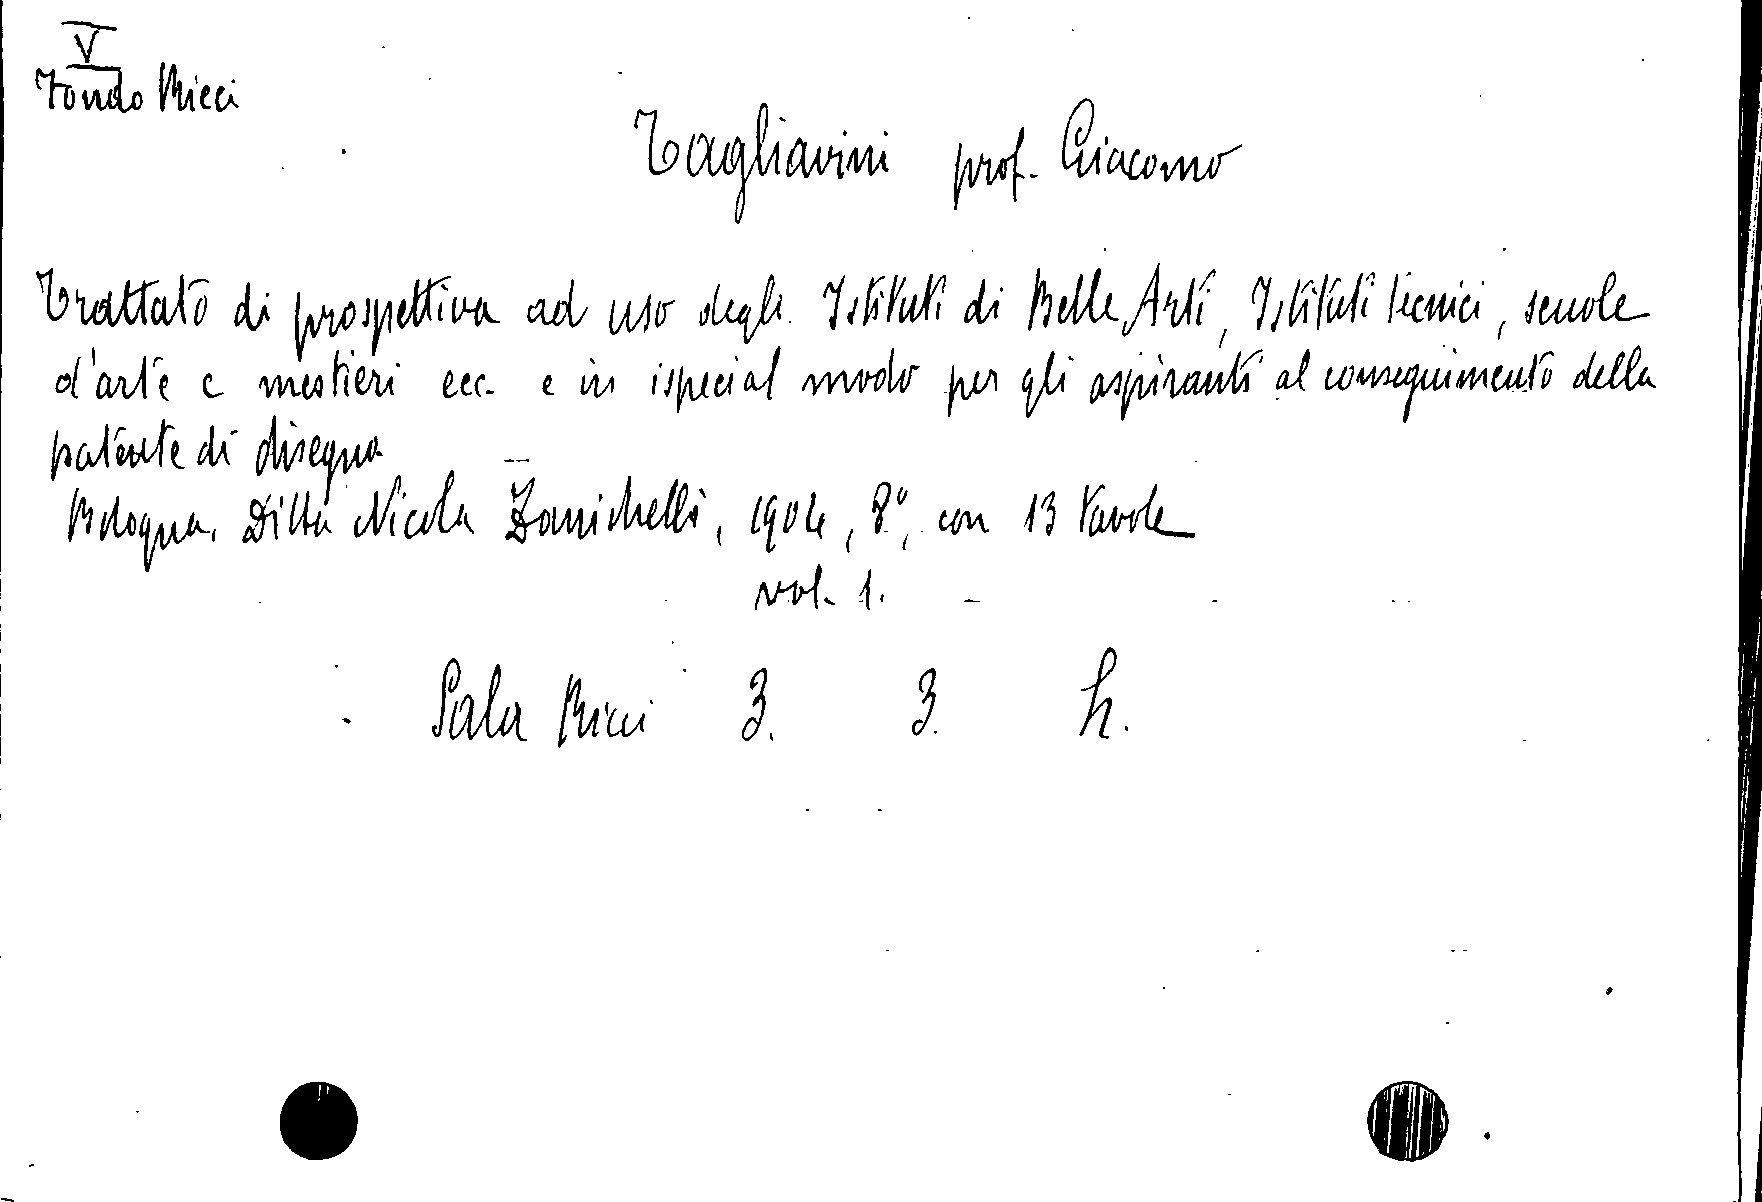 V
Fondo Ricci
Tagliavini prof. Giacomo
Trattato di prospettiva ad uso degli Istituti di Belle Arti, Istituti tecnici, scuole
d'arte e mestieri ecc. e in ispecial modo per gli aspiranti al conseguimento della
patente di disegno
Bologna, Ditta Nicola Zanichelli, 1904, 8°, con 13 tavole
vol. 1.
Sala Ricci 3. 3. h.